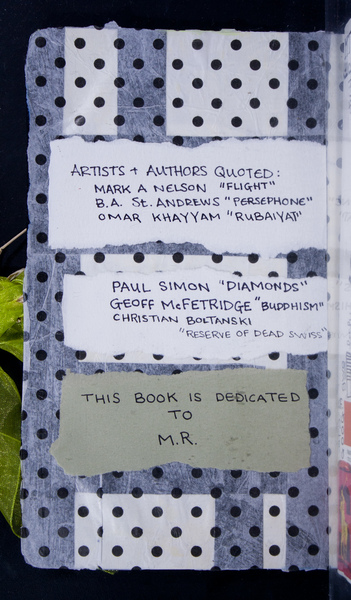 ARTISTS + AUTHORS QUOTED:
MARK A NELSON "FLIGHT"
B.A. St. ANDREWS "PERSEPHONE"
OMAR KHAYYAM "RUBAIYAT"
PAUL SIMON "DIAMONDS"
GEOFF McFETRIDGE "BUDDHISM"
CHRISTIAN BOLTANSKI
"RESERVE OF DEAD SWISS"
THIS BOOK IS DEDICATED
TO
M.R.